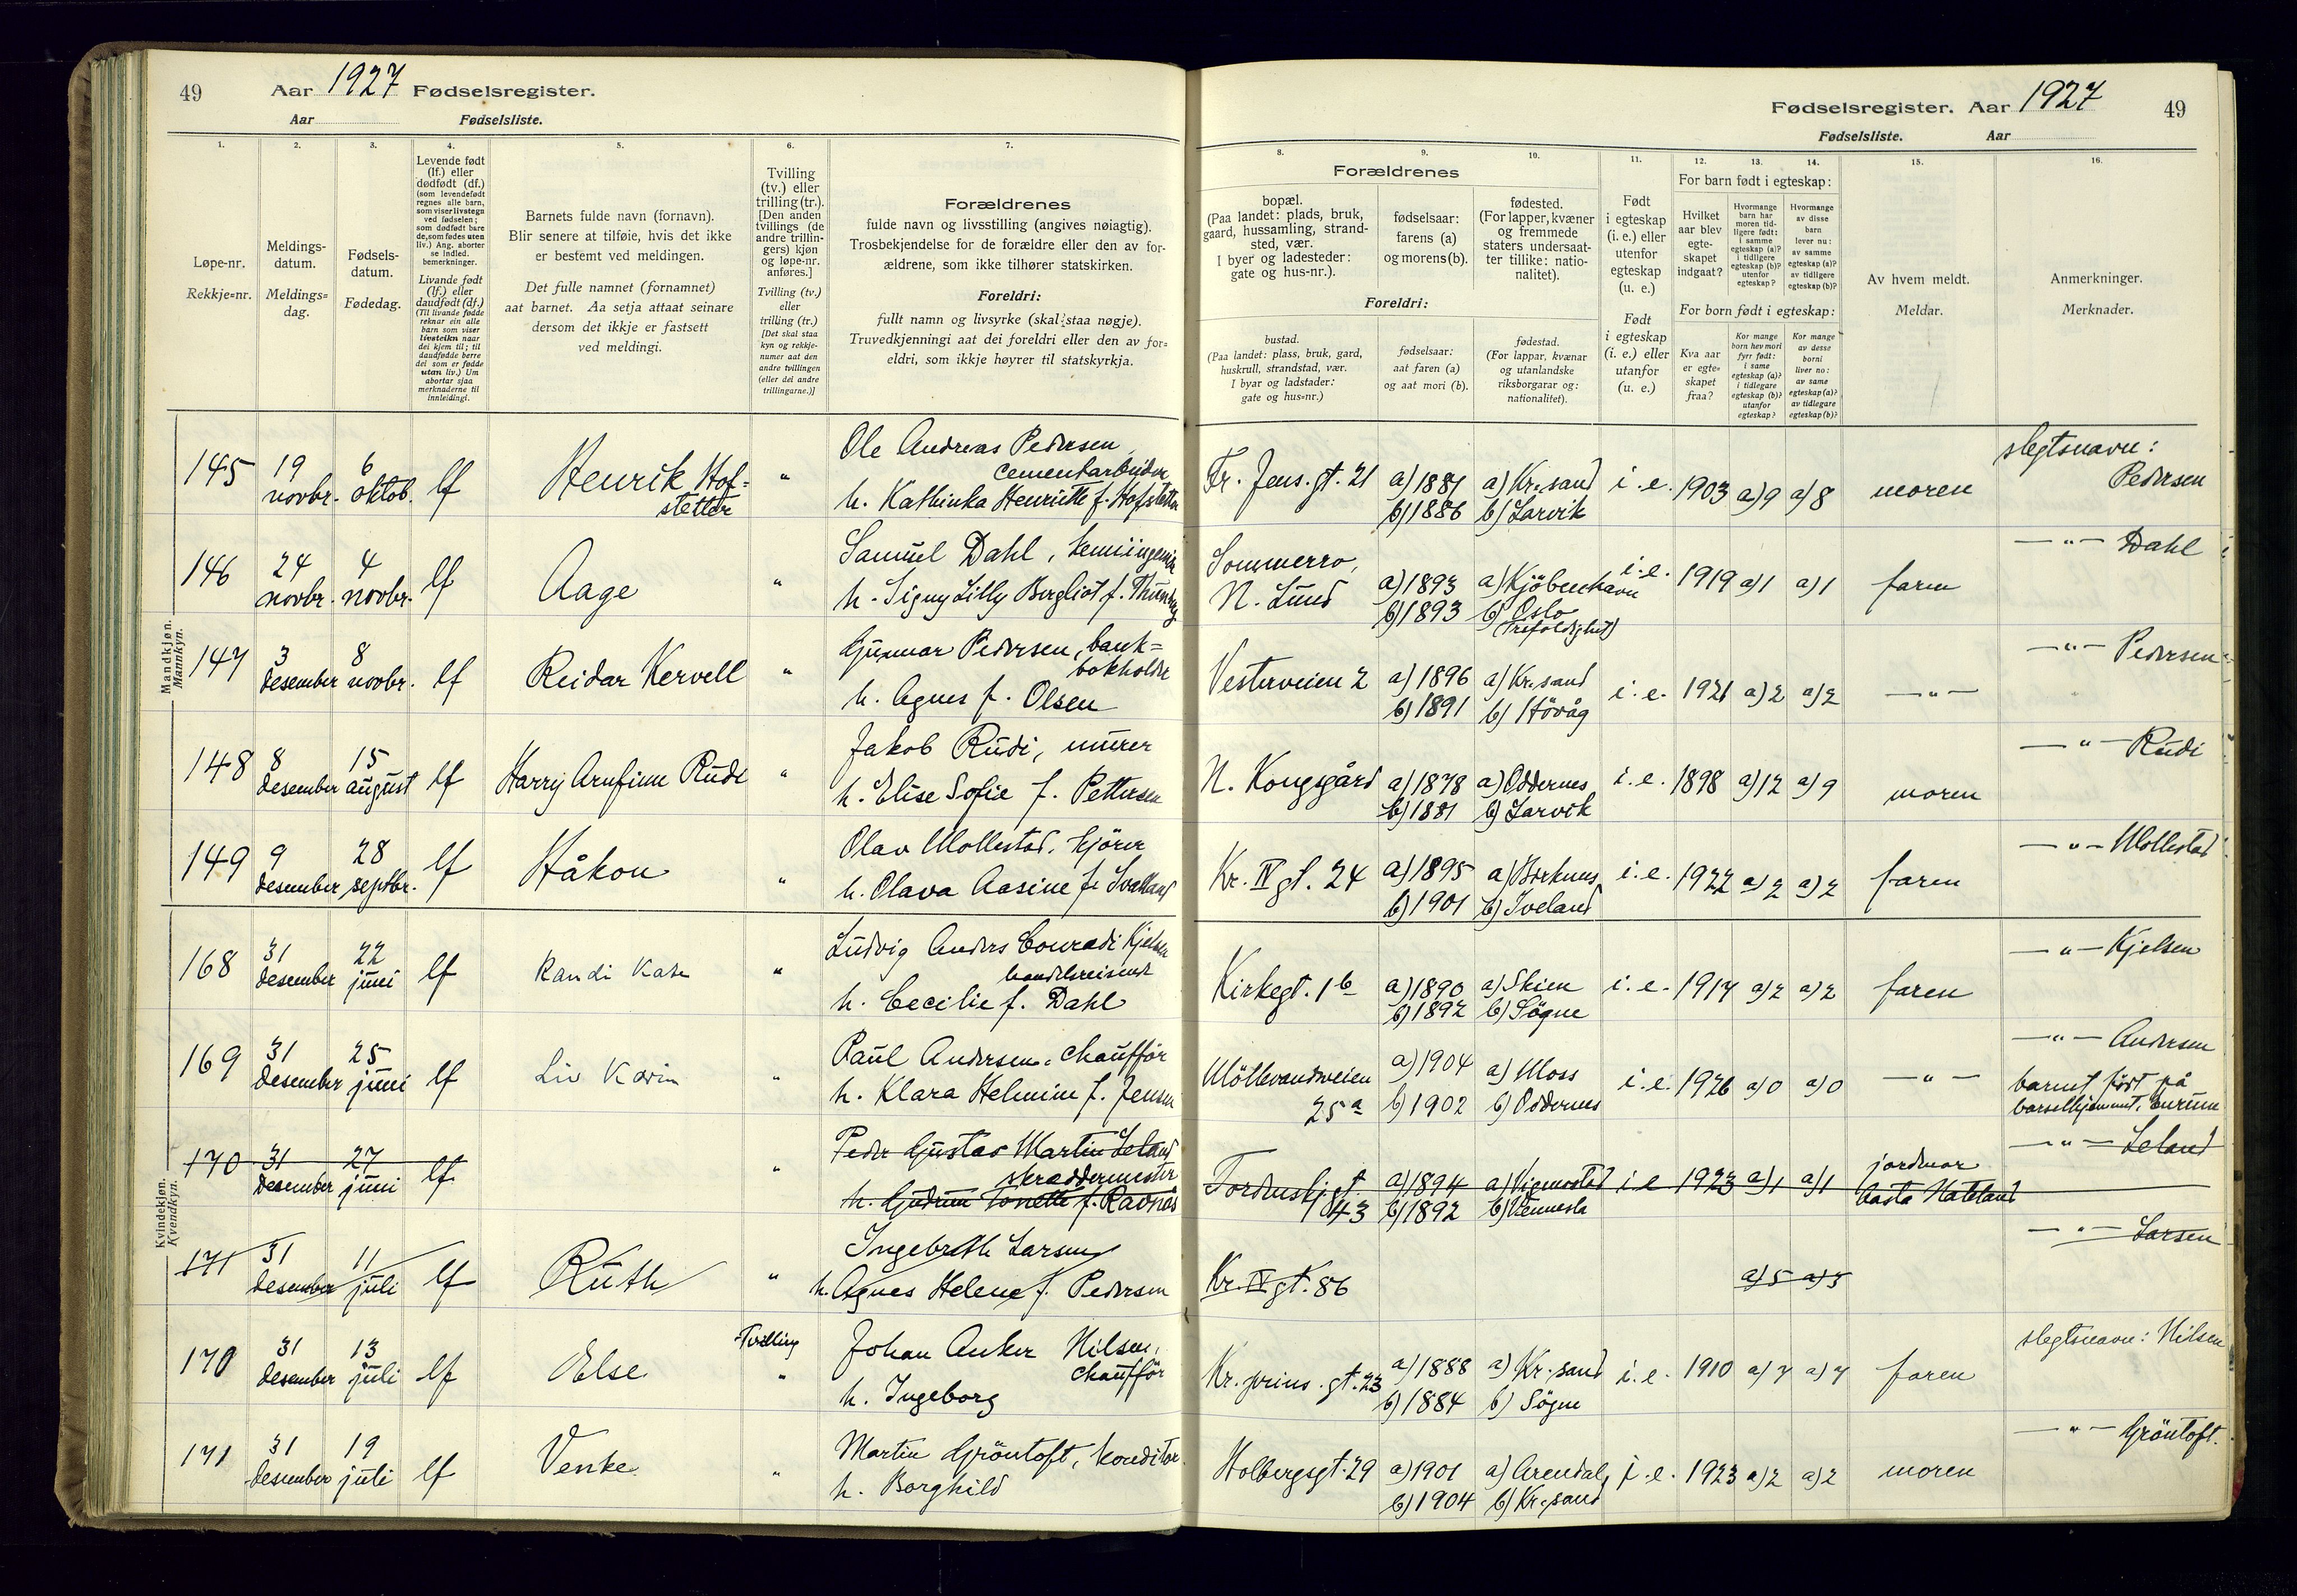 49 Aar 1927 Fødselsregister.
Aar Fødselsliste.
Fødselsregister. Aar 1927 49
Fødselsliste. Aar
1. 2. 3. 4. 5. 6. 7.
Løpe-nr.
Rekkje=nr.
Meldings-
datum.
Meldings=
dag.
Fødsels-
datum.
Fødedag.
Levende født
(lf.) eller
dødfødt (df.)
(som levendefødt
regnes alle barn,
som viser livstegn
ved fødselen;
som dødfødt bare
de, som fødes uten
liv.) Ang. aborter
se indled.
bemerkninger.
Livande født
(lf.) eller
daudfødt (df.)
(Til livande fødde
reknar ein alle
barn som viser
livsteikn naar
dei kjem til; til
daudfødde berre
dei som er fødde
utan liv.) Um
abortar sjaa
merknaderne til
innleidingi.
Barnets fulde navn (fornavn).
Blir senere at tilføie, hvis det ikke
er bestemt ved meldingen.
Det fulle namnet (fornamnet)
aat barnet. Aa setja attaat seinare
dersom det ikkje er fastsett
ved meldingi.
Tvilling
(tv.) eller
trilling (tr.).
[Den anden
tvillings (de
andre trillin-
gers) kjøn
og løpe-nr.
anføres.]
Tvilling (tv.)
eller
trilling (tr.)
[Det skal staa
kyn og rekkje-
numer aat den
andre tvillingen
(eller dei andre
trillingarne.)]
Forældrenes
fulde navn og livsstilling (angives nøiagtig).
Trosbekjendelse for de forældre eller den av for-
ældrene, som ikke tilhører statskirken.
Foreldri:
fullt namn og livsyrke (skal staa nøgje).
Truvedkjenningi aat dei foreldri eller den av for=
eldri, som ikkje høyrer til statskyrkja.
8. 9. 10. 11. 12. 13. 14. 15. 16.
Forældrenes
bopæl.
(Paa landet: plads, bruk,
gaard, hussamling, strand-
sted, vær.
I byer og ladesteder:
gate og hus-nr.).
fødselsaar:
farens (a)
og morens (b).
fødested.
(For lapper, kvæner
og fremmede
staters undersaat-
ter tillike: natio-
nalitet).
Foreldri:
bustad.
(Paa landet: plass, bruk, gard,
huskrull, strandstad, vær.
I byar og ladstader:
gate og hus=nr.)
fødselsaar:
aat faren (a)
og aat mori (b).
fødestad.
(For lappar, kvænar
og utanlandske
riksborgarar og:
nationalitet).
Født
i egteskap
(i. e.) eller
utenfor
egteskap
(u. e.)
Født
i egteskap
(i. e.) eller
utanfor
(u. e.)
For barn født i egteskap:
Hvilket
aar blev
egte-
skapet
indgaat?
Hvormange
barn har
moren tid-
ligere født:
i samme
egteskap (a)?
i tidligere
egteskap (b)?
utenfor
egteskap?
Hvormange
av disse
barn
lever nu:
av samme
egteskap (a)?
av tidligere
egteskap (b)?
For born født i egteskap:
Kva aar
er egte=
skapet
fraa?
Kor mange
born hev mori
fyrr født:
i same
egteskap (a)?
i tidlegare
egteskap (b)?
utanfor
egteskap?
Kor mange
av desse
borni
liver no:
av same
egteskap (a)?
av tidlegare
egteskap (b)?
Av hvem meldt.
Meldar.
Anmerkninger.
Merknader.
Mandkjøn.
Mannkyn.
145 19 novbr. 6 oktob. lf Henrik Hof=
stetter " Ole Andreas Pedersen,
cementarbeider
h. Kathinka Henriette f. Hofstetter
Fr. Jens. gt. 21 a) 1881 b) 1886 a) Kr.sand b) Larvik i. e. 1903 a) 9 a) 8 moren slegtsnavn: Pedersen
146 24 novbr. 4 novbr. lf Aage " Samuel Dahl, kemiingeniør
h. Signy Lilly Bergliot f.
Sommerro, N. Lund a) 1893 b) 1893 a) Kjöbenhavn b) Oslo (Trefoldighet) i. e. 1919 a) 1 a) 1 faren — " — Dahl
147 3 desember 8 novbr. lf Reidar Kervell " Gunnar Pedersen, bank=
bokholder
h. Agnes f. Olsen
Vesterveien 2 a) 1896 b) 1891 a) Kr.sand b) Hövåg i. e. 1921 a) 2 a) 2 — " — — " — Pedersen
148 8 desember 15 august lf Harry Arnfinn Rudi " Jakob Rudi, murer
h. Elise Sofie f. Pettersen
N. Kongsgård a) 1878 b) 1881 a) Oddernes b) Larvik i. e. 1898 a) 12 a) 9 moren — " — Rudi
149 9 desember 28 septbr. lf Håkon " Olav Mollestad, kjörer
h. Olava Aasine f. Svaland
Kr. IV gt. 24 a) 1895 b) 1901 a) Birkenes b) Iveland i. e. 1922 a) 2 a) 2 faren — " — Mollestad
Kvindekjøn.
Kvendkyn.
168 31 desember 22 juni lf Randi Kate " Ludvig Anders Conradi Kjelsen
handelsreisende
h. Cecilie f. Dahl
Kirkegt. 1b a) 1890 b) 1892 a) Skien b) Sögne i. e. 1917 a) 2 a) 2 faren — " — Kjelsen
169 31 desember 25 juni lf Liv Karin " Paul Andersen, chaufför
h. Klara Helmine f. Jensen
Möllevandsveien 25a a) 1904 b) 1902 a) Moss b) Oddernes i. e. 1926 a) 0 a) 0 — " — — " — Andersen
barnet födt på
barselhjemmet,
170 31 desember 27 juni lf " Peder Gustav Martin Leland
skreddermester
h. Gudrun Tonette f. Ravnås
Tordenskj. gt. 43 a) 1894 b) 1892 a) Vigmostad b) Vennesla i. e. 1923 a) 1 a) 1 jordmor Aasta Hateland — " — Leland
171 31 desember 11 juli lf Ruth " Ingebreth Larsen
h. Agnes Helene f. Pedersen
Kr. IV gt. 86 a) 5 a) 5 — " — Larsen
170 31 desember 13 juli lf Else Tvilling " Johan Anker Nilsen,
chaufför
h. Ingeborg
Kr. prins. gt. 23 a) 1888 b) 1884 a) Kr.sand b) Sögne i. e. 1910 a) 7 a) 7 faren slegtsnavn: Nilsen
171 31 desember 19 juli lf Venke " Martin Gröntoft, konditor
h. Borghild
Holbergsgt. 29 a) 1901 b) 1904 a) Arendal b) Kr.sand i. e. 1923 a) 2 a) 2 moren — " — Gröntoft.